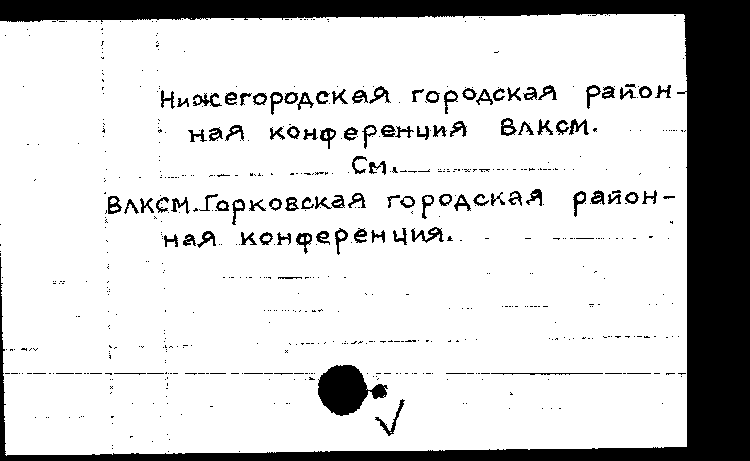 Нижегородская городская район-
ная конференция ВЛКСМ.
См.
ВЛКСМ. Горковская городская район-
ная конференция.